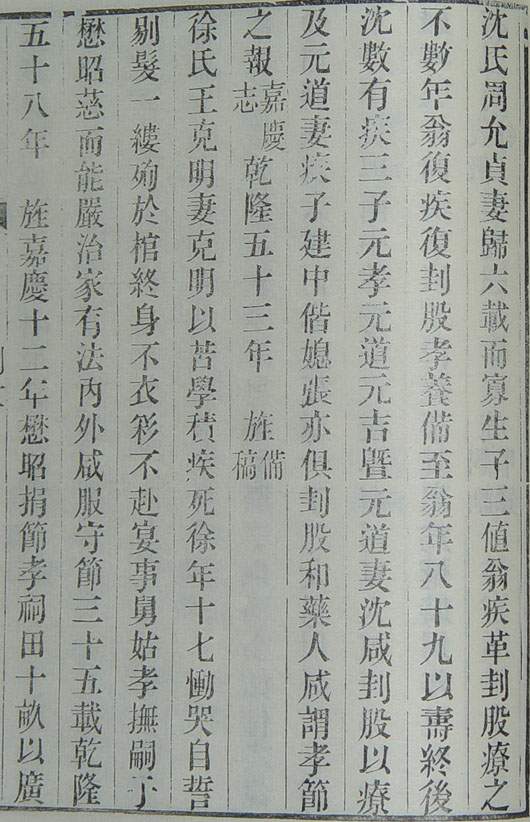 沈氏周允貞妻歸六載而寡生子三値翁疾革刲股療之
不數年翁復疾復刲股孝養備至翁年八十九以壽終後
沈數有疾三子元孝元道元吉曁元道妻沈咸刲股以療
及元道妻疾子建中偕媳張亦俱刲股和藥人咸謂孝節
之報嘉慶志乾隆五十三年　旌備稿
徐氏王克明妻克明以苦學積疾死徐年十七慟哭自誓
剔髮一縷殉於棺終身不衣彩不赴宴事舅姑孝撫嗣子
懋昭慈而能嚴治家有法內外咸服守節三十五載乾隆
五十八年　旌嘉慶十二年懋昭捐節孝祠田十畝以廣